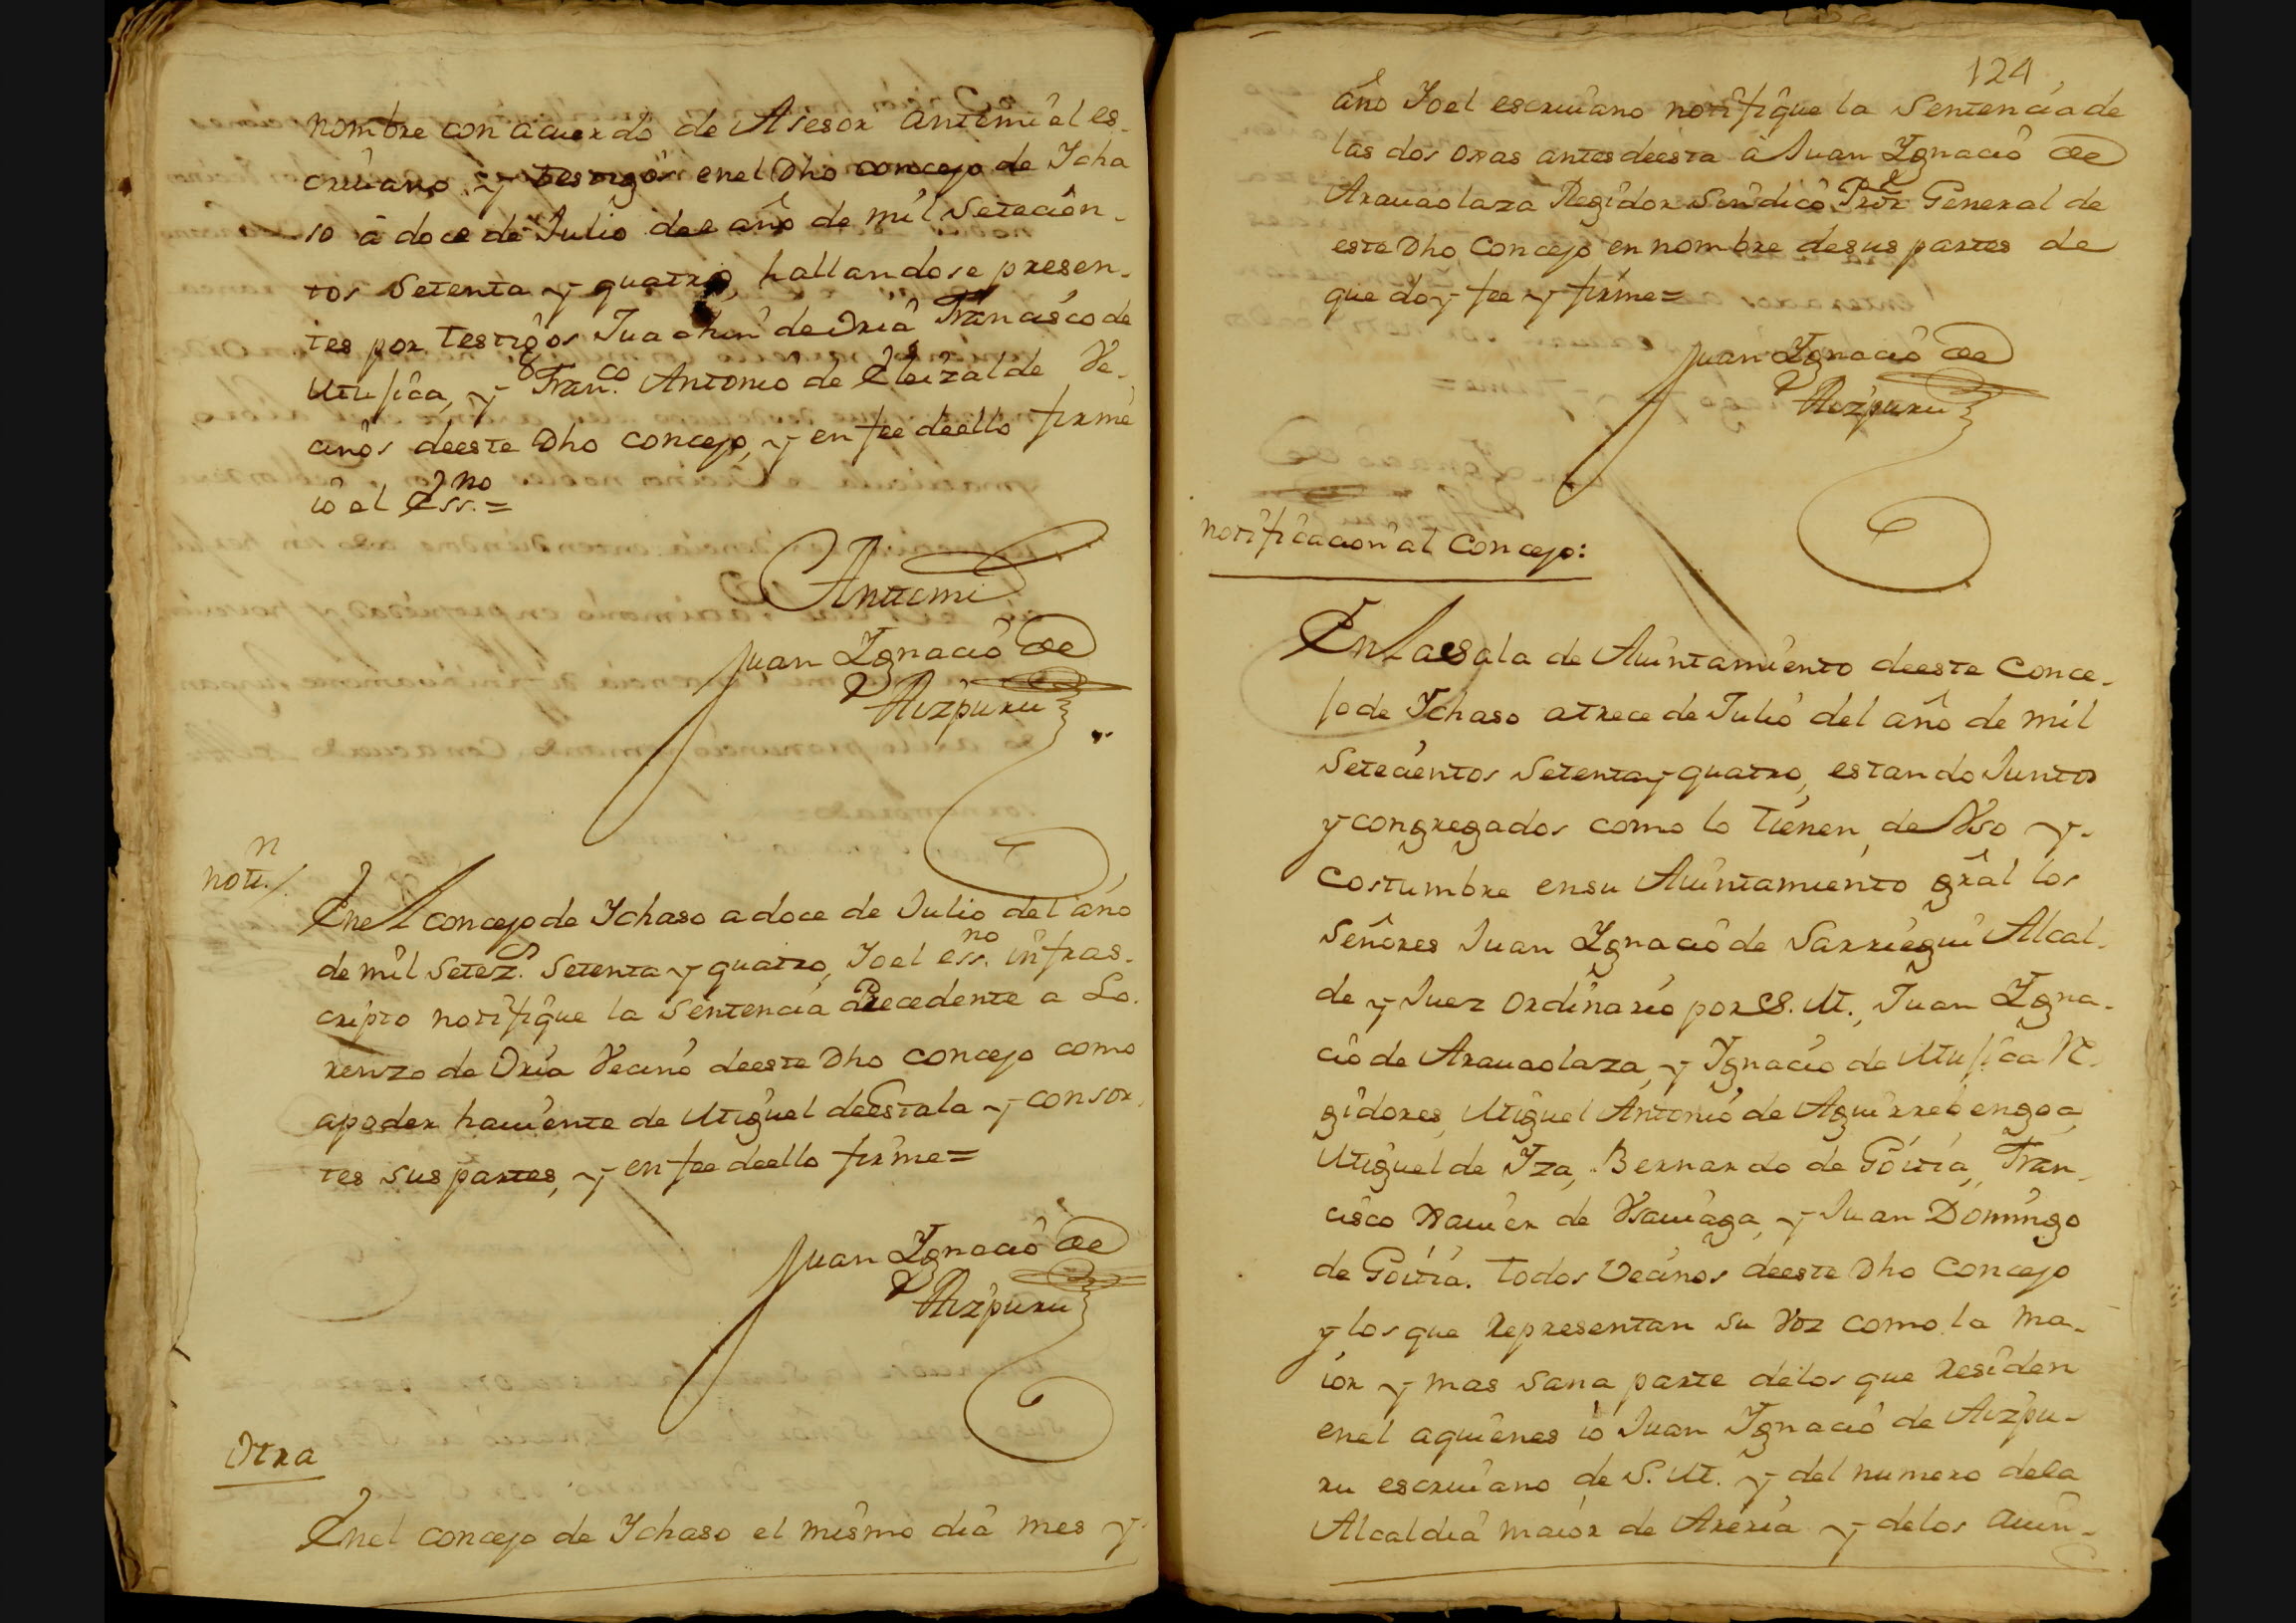 nombre con acuerdo de Asesor antemi el es-
criuano, y testigos enel Dho concejo de Ycha
so a doce de Julio del año de mil Setecien-
tos Setenta y quatro, hallandose presen-
tes por testigos Juachin de Oria Francisco de
Mujica, y Fran.co Antonio de Eleizalde Ve-
cinos deeste Dho concejo, y en fee deello firmé
io el Ess.no=
Antemi
Juan Ygnacio de
Aizpuru
noti.n/
Enel concejo de Ychaso a doce de Julio del año
de mil Setez.s Setenta y quatro, Yo el ess.no infras-
cripto notifique la Sentencia Precedente a Lo-
renzo de Oria Vecino deeste Dho concejo como
apoder hauiente de Miguel deEstala y consor-
tes sus partes, y en fee deello firme=
Juan Ygnacio de
Aizpuru
Otra
Enel concejo de Ychaso el mismo dia mes y
124
año Yo el escriuano notifique la Sentencia de
las dos oxas antes deesta a Juan Ygnacio de
Arauaolaza Regidor Sindico Pror General de
este Dho Concejo en nombre desus partes de
que doy fee y firme=
Juan Ygnacio de
Aizpuru
notificacion al Concejo:
En la Sala de Auintamiento deeste Conce-
jo de Ychaso a trece de Julio del año de mil
Setecientos Setenta y quatro, estando Juntos
y congregados como lo tienen, de Vso y
costumbre ensu Auintamiento gral los
Señores Juan Ygnacio de Sarriegui Alcal-
de y Juez ordinario por S. M., Juan Ygna-
cio de Arauaolaza, y Ygnacio de Mujica Re-
gidores, Miguel Antonio de Aguirrebengoa,
Miguel de Yza, Bernardo de Goitia, Fran-
cisco Xauier de Vsauiaga, y Juan Domingo
de Goitia. todos Vecinos deeste Dho Concejo
y los que Representan su Voz como la ma-
ior y mas sana parte delos que residen
enel aquienes io Juan Ygnacio de Aizpu-
ru escriuano de S. M. y del numero dela
Alcaldia maior de Areria y delos auin-